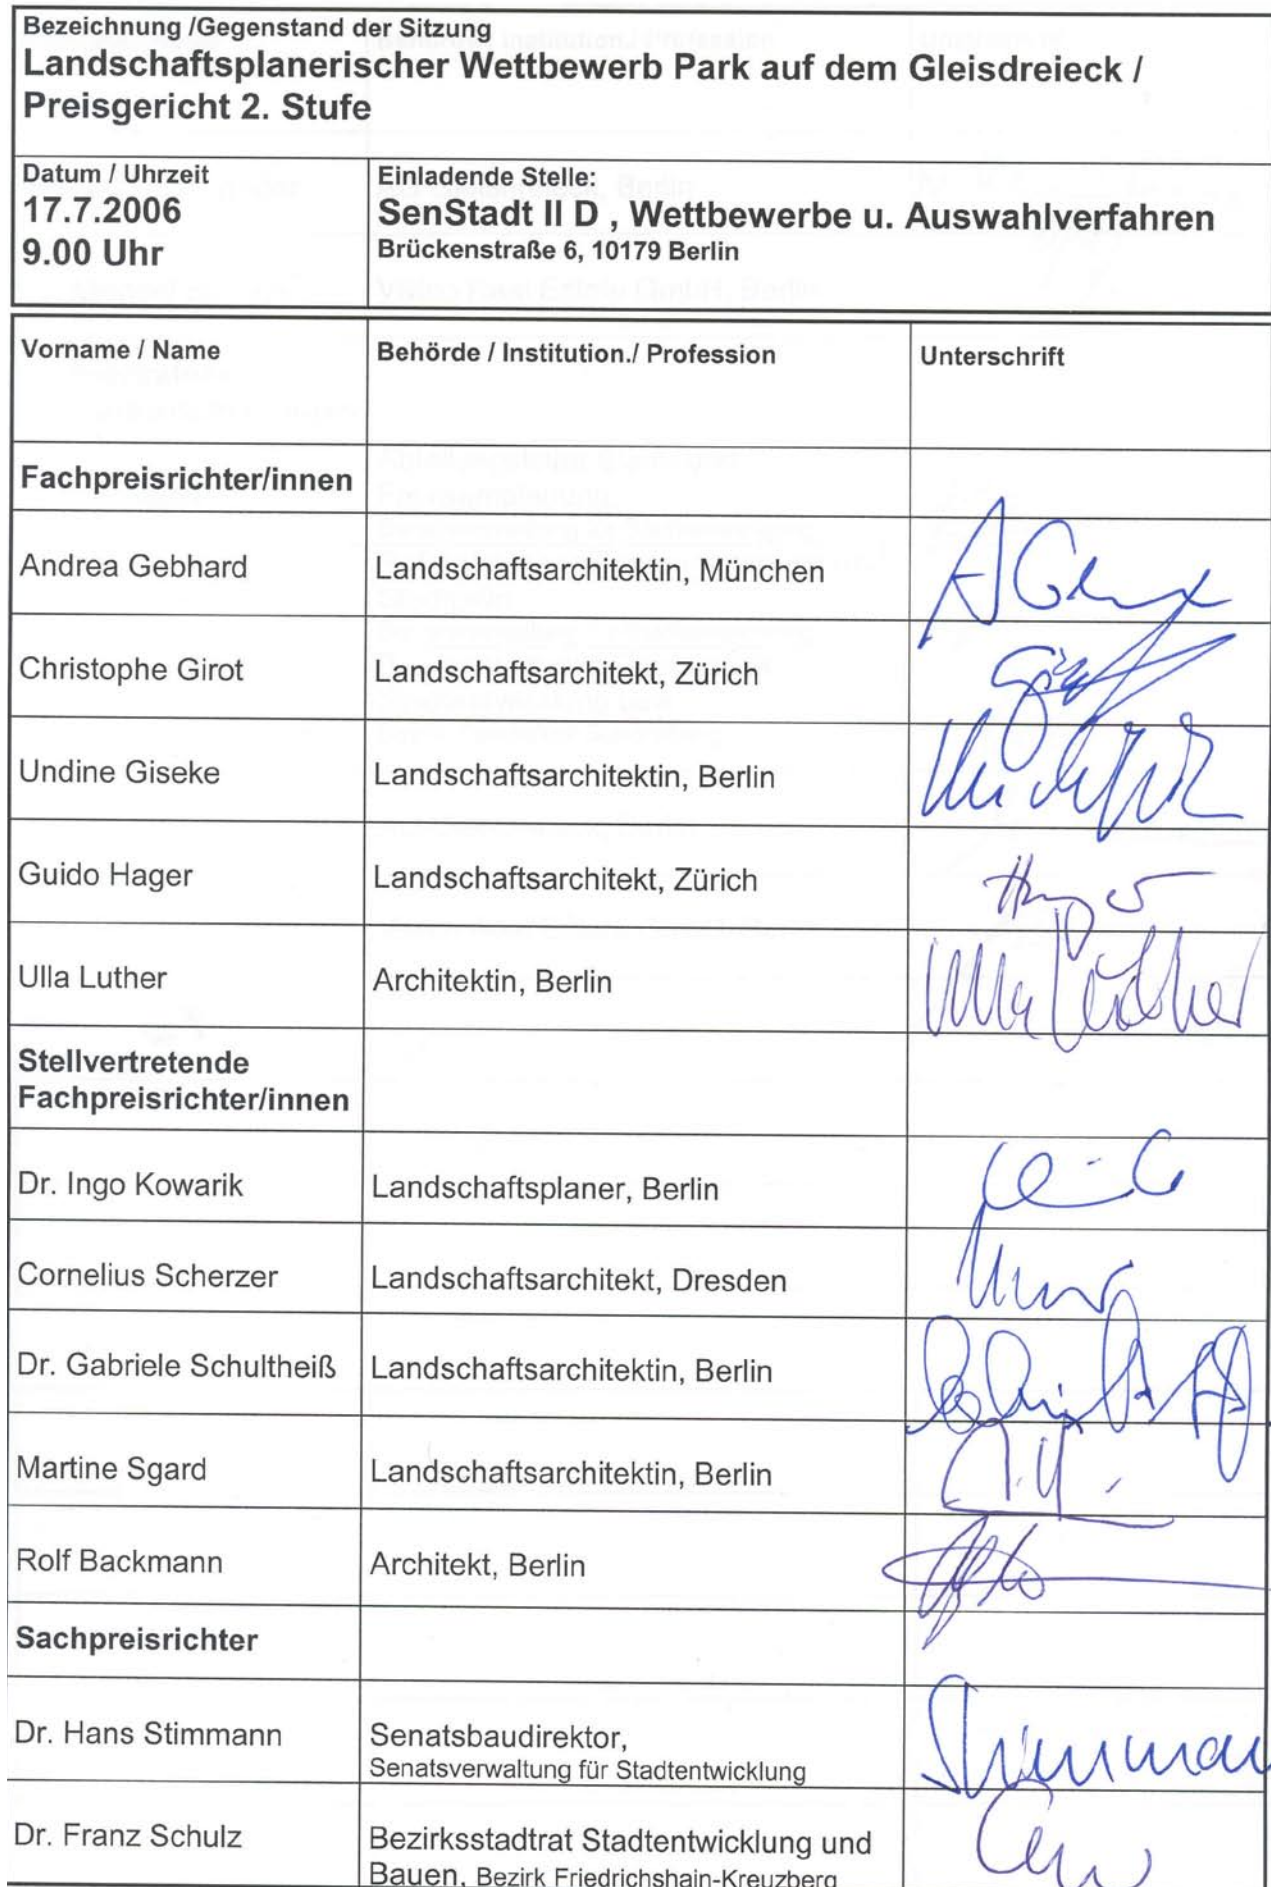 Bezeichnung /Gegenstand der Sitzung
Landschaftsplanerischer Wettbewerb Park auf dem Gleisdreieck /
Preisgericht 2. Stufe
Datum / Uhrzeit
17.7.2006
9.00 Uhr
Einladende Stelle:
SenStadt II D , Wettbewerbe u. Auswahlverfahren
Brückenstraße 6, 10179 Berlin
Vorname / Name
Behörde / Institution./ Profession
Unterschrift
Fachpreisrichter/innen
Andrea Gebhard
Landschaftsarchitektin, München
Christophe Girot
Landschaftsarchitekt, Zürich
Undine Giseke
Landschaftsarchitektin, Berlin
Guido Hager
Landschaftsarchitekt, Zürich
Ulla Luther
Architektin, Berlin
Ulla Luther
Stellvertretende
Fachpreisrichter/innen
Dr. Ingo Kowarik
Landschaftsplaner, Berlin
Cornelius Scherzer
Landschaftsarchitekt, Dresden
Dr. Gabriele Schultheiß
Landschaftsarchitektin, Berlin
Martine Sgard
Landschaftsarchitektin, Berlin
Rolf Backmann
Architekt, Berlin
Sachpreisrichter
Dr. Hans Stimmann
Senatsbaudirektor,
Senatsverwaltung für Stadtentwicklung
Dr. Franz Schulz
Bezirksstadtrat Stadtentwicklung und
Bauen, Bezirk Friedrichshain-Kreuzberg